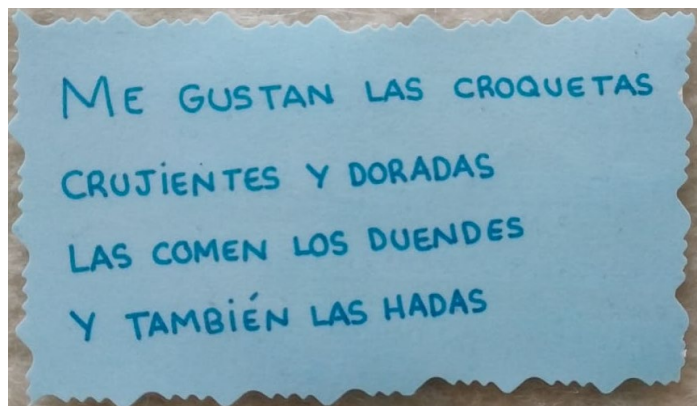 ME GUSTAN LAS CROQUETAS
CRUJiENTES Y DORADAS
LAS COMEN LOS DUENDES
Y TAMBiÉN LAS HADAS